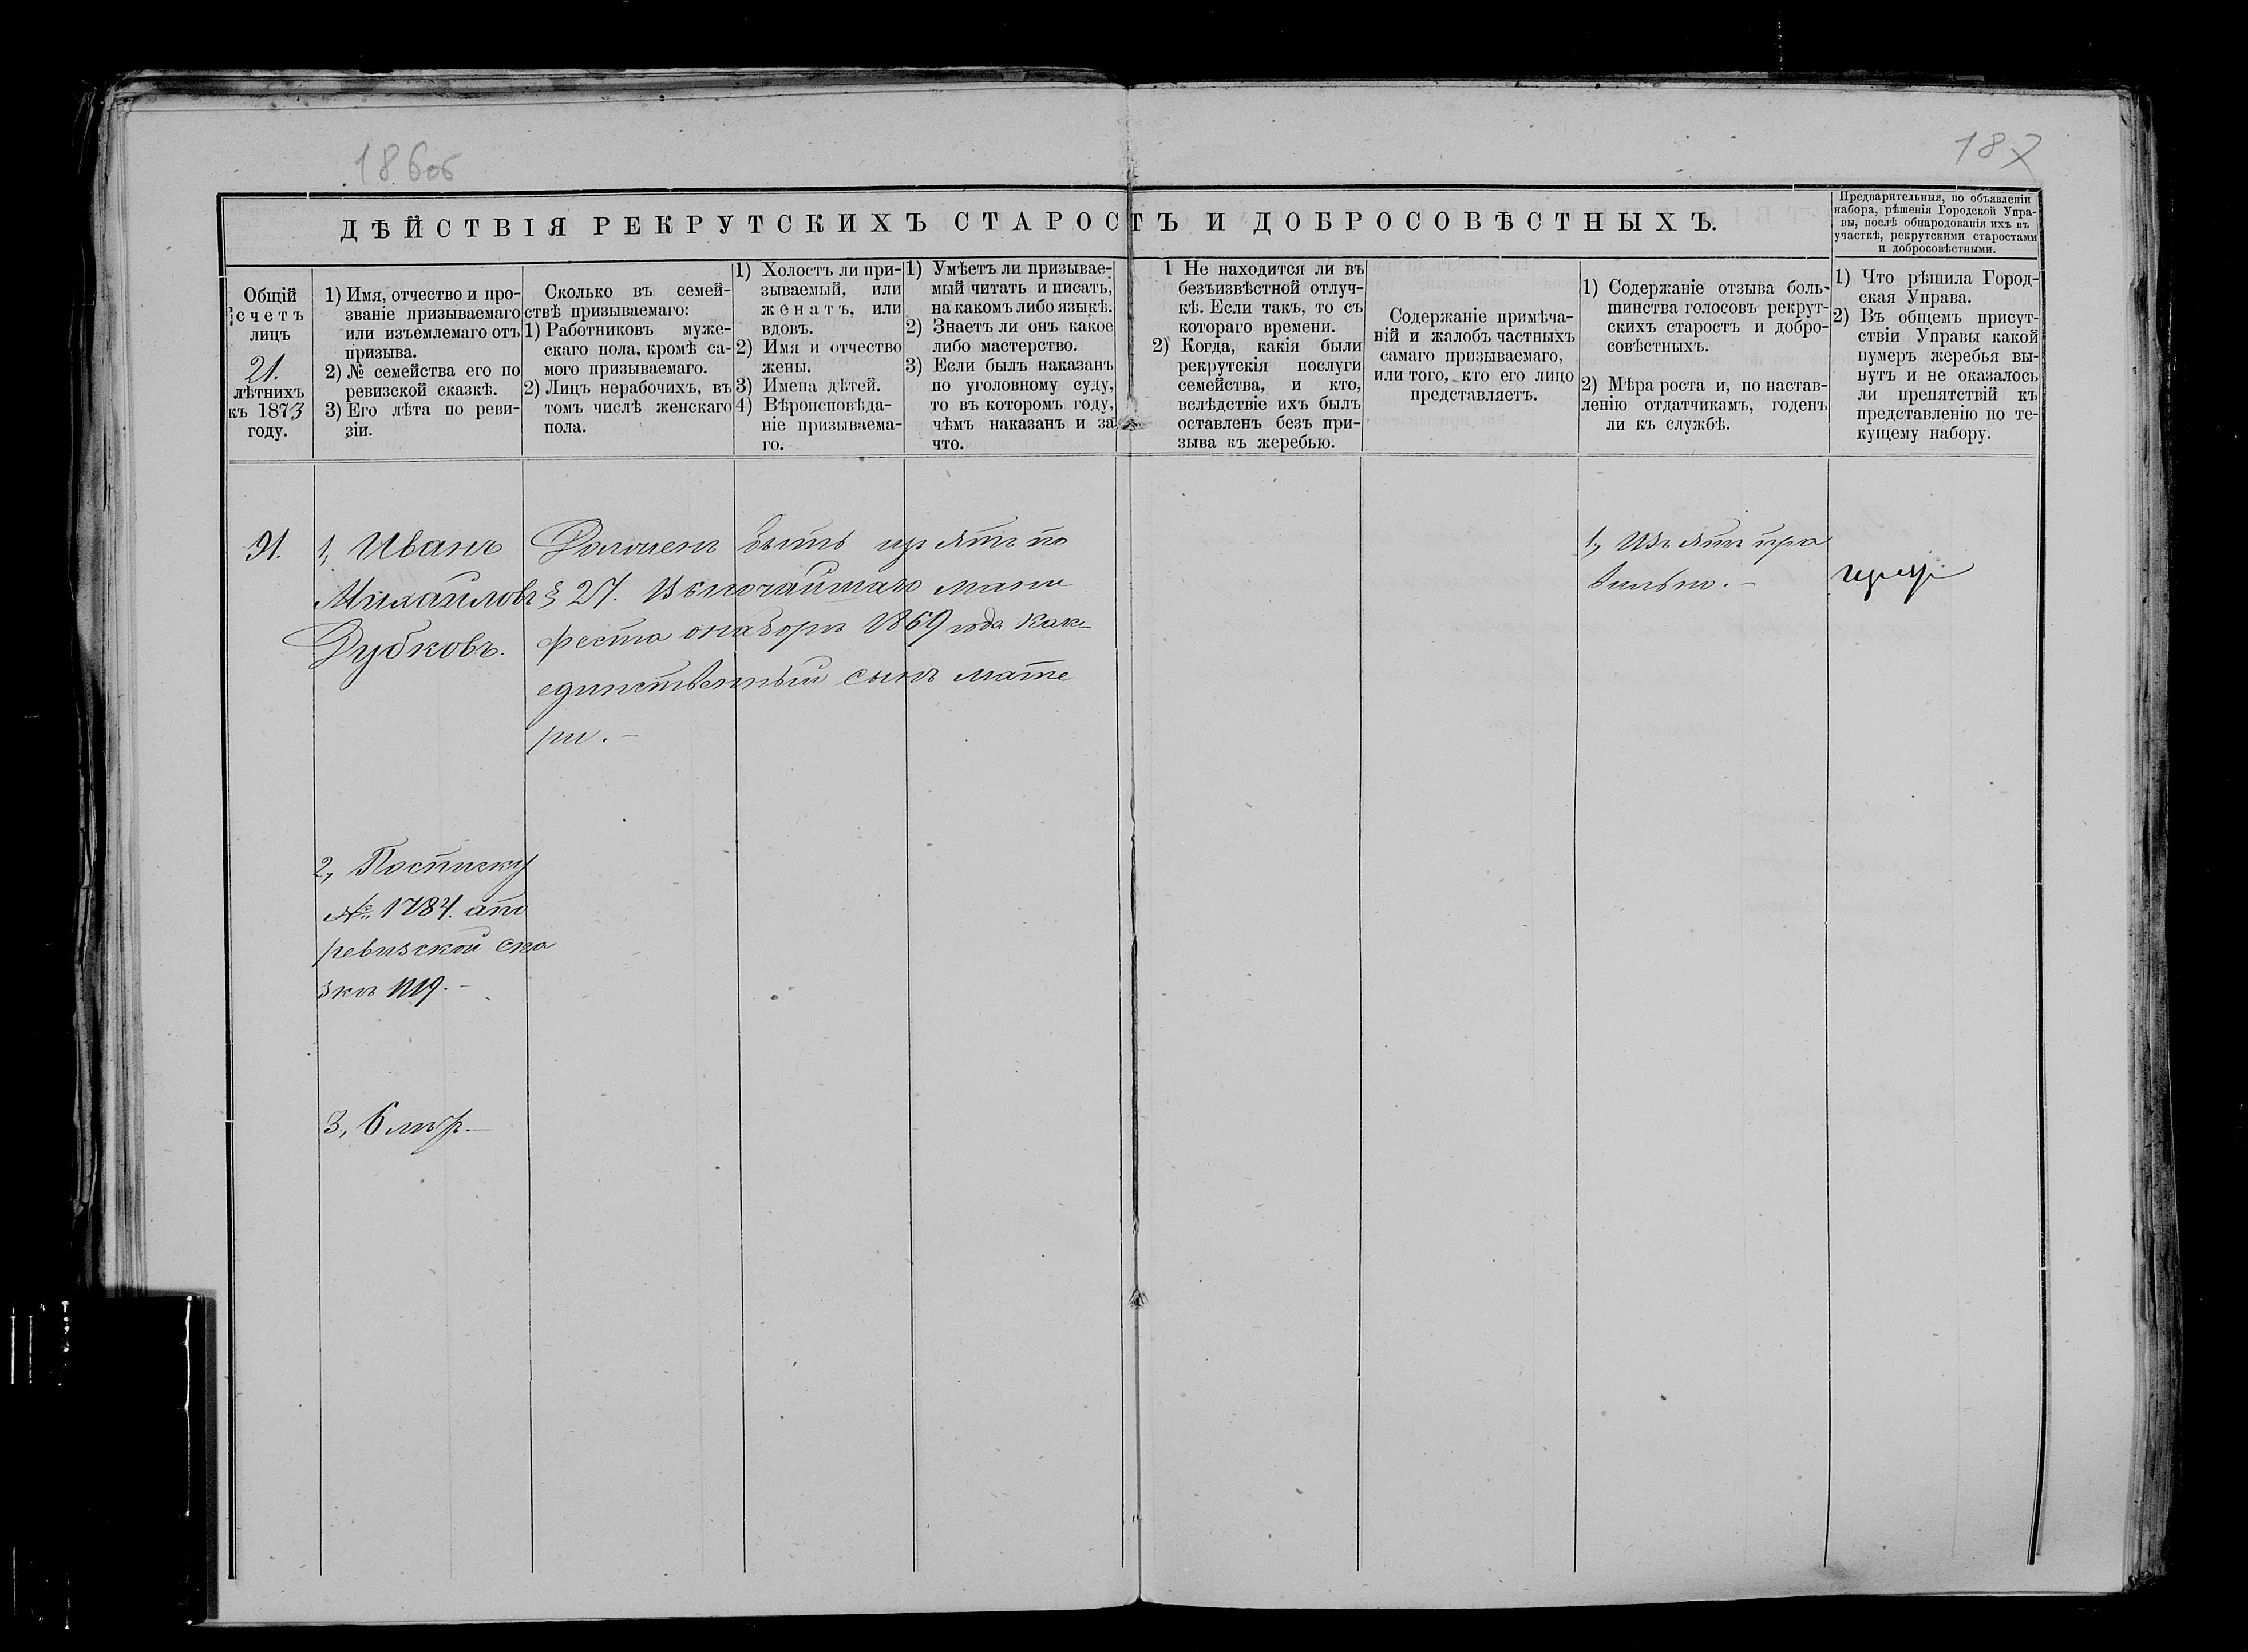 186об
187
ДѢЙСТВІЯ РЕКРУТСКИХЪ СТАРОСТЪ И ДОБРОСОВѢСТНЫХЪ.
Предварительныя, по объявленіи
набора, рѣшенія Городской Упра-
вы, послѣ обнародованія ихъ въ
участкѣ, рекрутскими старостами
и добросовѣстными.
Общій
счетъ
лицъ
21.
лѣтнихъ
къ 1873
году.
1) Имя, отчество и про-
званіе призываемаго
или изъемлемаго отъ
призыва.
2) № семейства его по
ревизской сказкѣ.
3) Его лѣта по реви-
зіи.
Сколько въ семей-
ствѣ призываемаго:
1) Работниковъ муже-
скаго пола, кромѣ са-
мого призываемаго.
2) Лицъ нерабочихъ, въ
томъ числѣ женскаго
пола.
1) Холостъ ли при-
зываемый, или
женатъ, или
вдовъ.
2) Имя и отчество
жены.
3) Имена дѣтей.
4) Вѣроисповѣда-
ніе призываема-
го.
1) Умѣетъ ли призывае-
мый читать и писать,
на какомъ либо языкѣ.
2) Знаетъ ли онъ какое
либо мастерство.
3) Если былъ наказанъ
по уголовному суду,
то въ которомъ году,
чѣмъ наказанъ и за
что.
1 Не находится ли въ
безъизвѣстной отлуч-
кѣ. Если такъ, то съ
котораго времени.
2) Когда, какія были
рекрутскія послуги
семейства, и кто,
вслѣдствіе ихъ былъ
оставленъ безъ при-
зыва къ жеребью.
Содержаніе примѣча-
ній и жалобъ частныхъ
самаго призываемаго,
или того, кто его лицо
представляетъ.
1) Содержаніе отзыва боль-
шинства голосовъ рекрут-
скихъ старостъ и добро-
совѣстныхъ.
2) Мѣра роста и, по настав-
ленію отдатчикамъ, годенъ
ли къ службѣ.
1) Что рѣшила Город-
ская Управа.
2) Въ общемъ присут-
ствіи Управы какой
нумеръ жеребья вы-
нутъ и не оказалось
ли препятствій къ
представленію по те-
кущему набору.
91.
1, Иванъ
Михайловъ
Дубковъ.
2, Посписку
№ 1784. апо
ревизской ска
зкѣ 1119.-
3, 6 лѣтъ.-
Долженъ быть изъятъ по
§ 27. Высочайшаго мани
феста онаборѣ 1869 года какъ
единственный сынъ мате
ри.-
1, Изъятъ пра
вильно.-